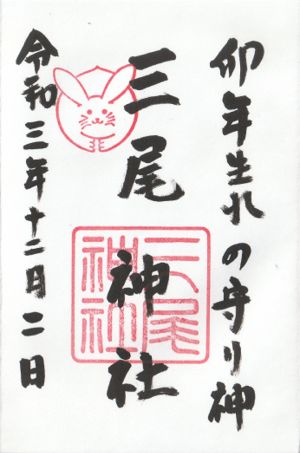 卯年生れの守り神
三尾神社
三尾神社
令和三年十二月二日